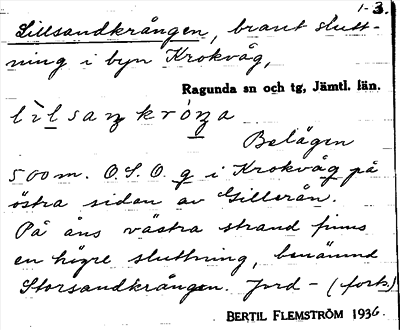 1-3.
Lillsandkrången, brant slutt-
ning i byn Krokvåg,
Ragunda sn och tg, Jämtl. län.
Belägen
500 m. O.S.O. g i Krokvåg på
östra sidan av Gillerån.
På åns västra strand finns
en högre sluttning, benämnd
Storsandkrången. Jord- (forts.)
BERTIL FLEMSTRÖM 1936.